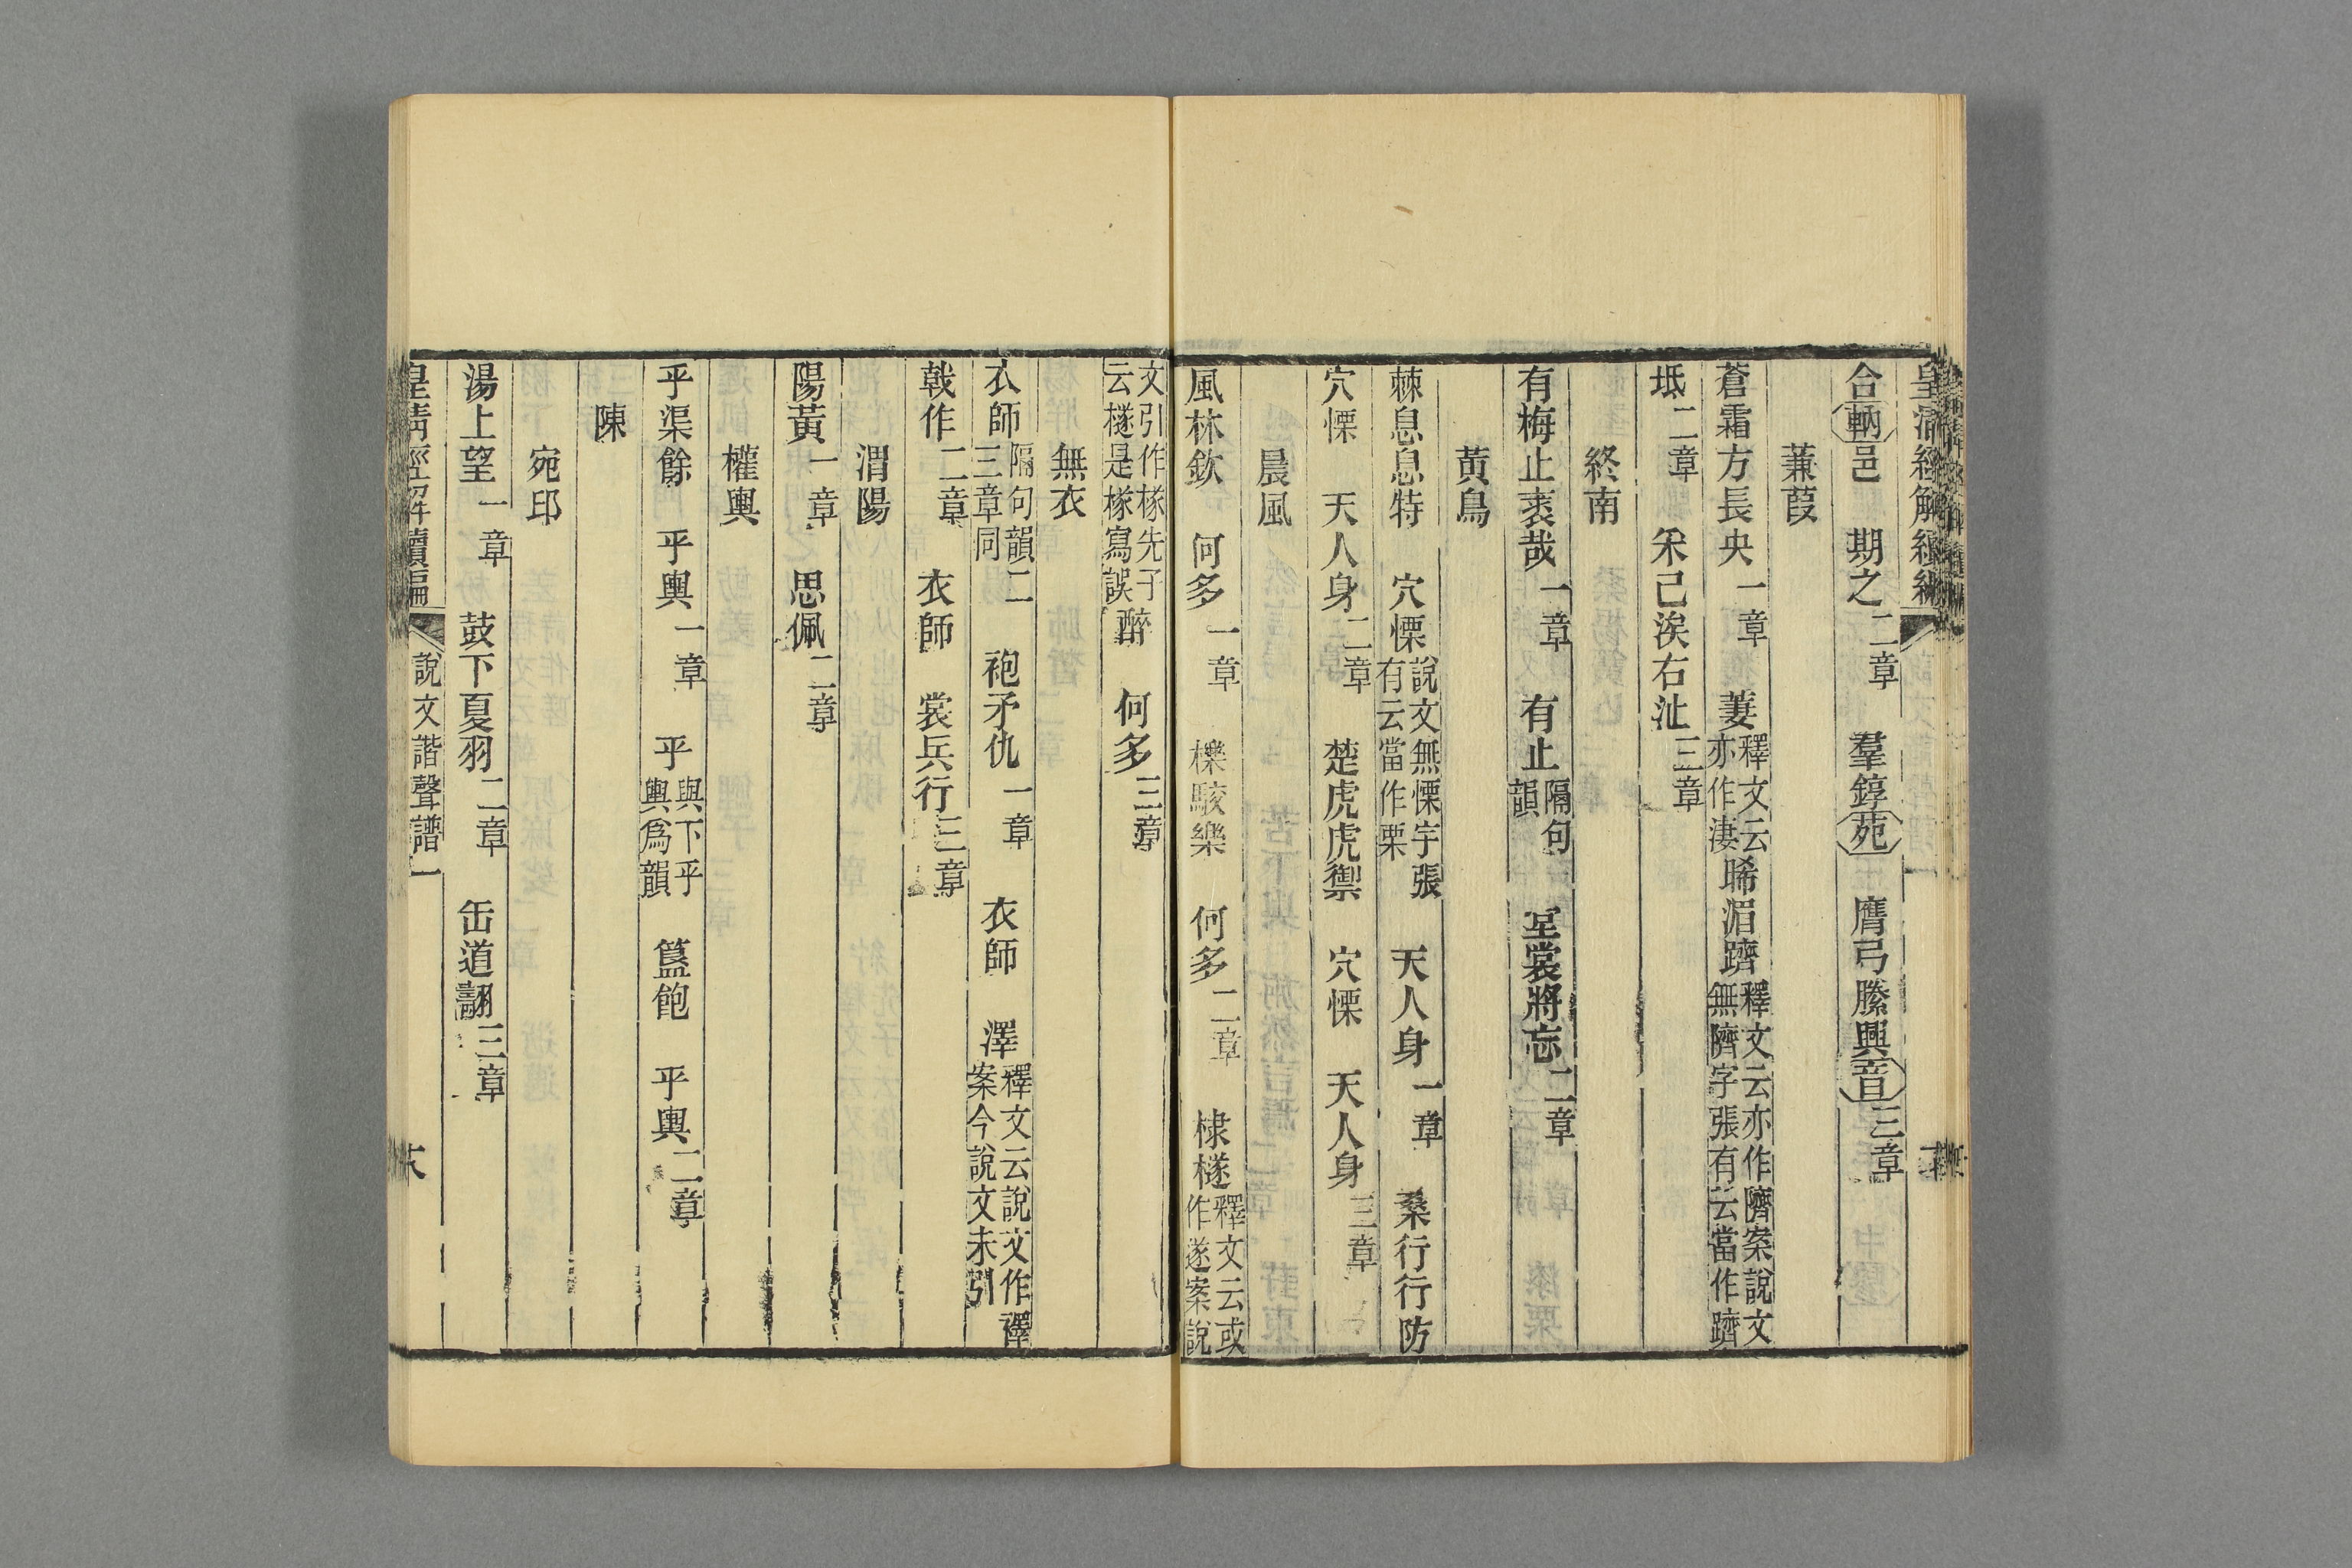 合軜邑　期之二章　羣錞苑　膺弓縢興音三章
蒹葭
蒼霜方長央一章　萋釋文云亦作淒晞湄躋釋文云亦作隮案說文無隮字張有云當作躋
坻二章　采己涘右沚三章
終南
有梅止裘哉一章　有止隔句韻　堂裳將忘二章
黃鳥
棘息息特　穴慄說文無慄字張有云當作栗　天人身一章　桑行行防
穴慄　天人身二章　楚虎虎禦　穴慄　天人身三章
晨風
風林欽　何多一章　櫟駮樂　何多二章　棣檖釋文云或作遂案說
文引作㯌先子云檖是㯌寫誤醉　何多三章
無衣
衣師隔句韻二三章同　袍矛仇一章　衣師　澤釋文云說文作襗案今說文未引
戟作二章　衣師　裳兵行三章
渭陽
陽黃一章　思佩二章
權輿
乎渠餘　乎輿一章　乎與下乎輿爲韻　簋飽　乎輿二章
陳
宛邱
湯上望一章　鼓下夏羽二章　缶道翿三章
皇清經解續編　說文諧聲譜一